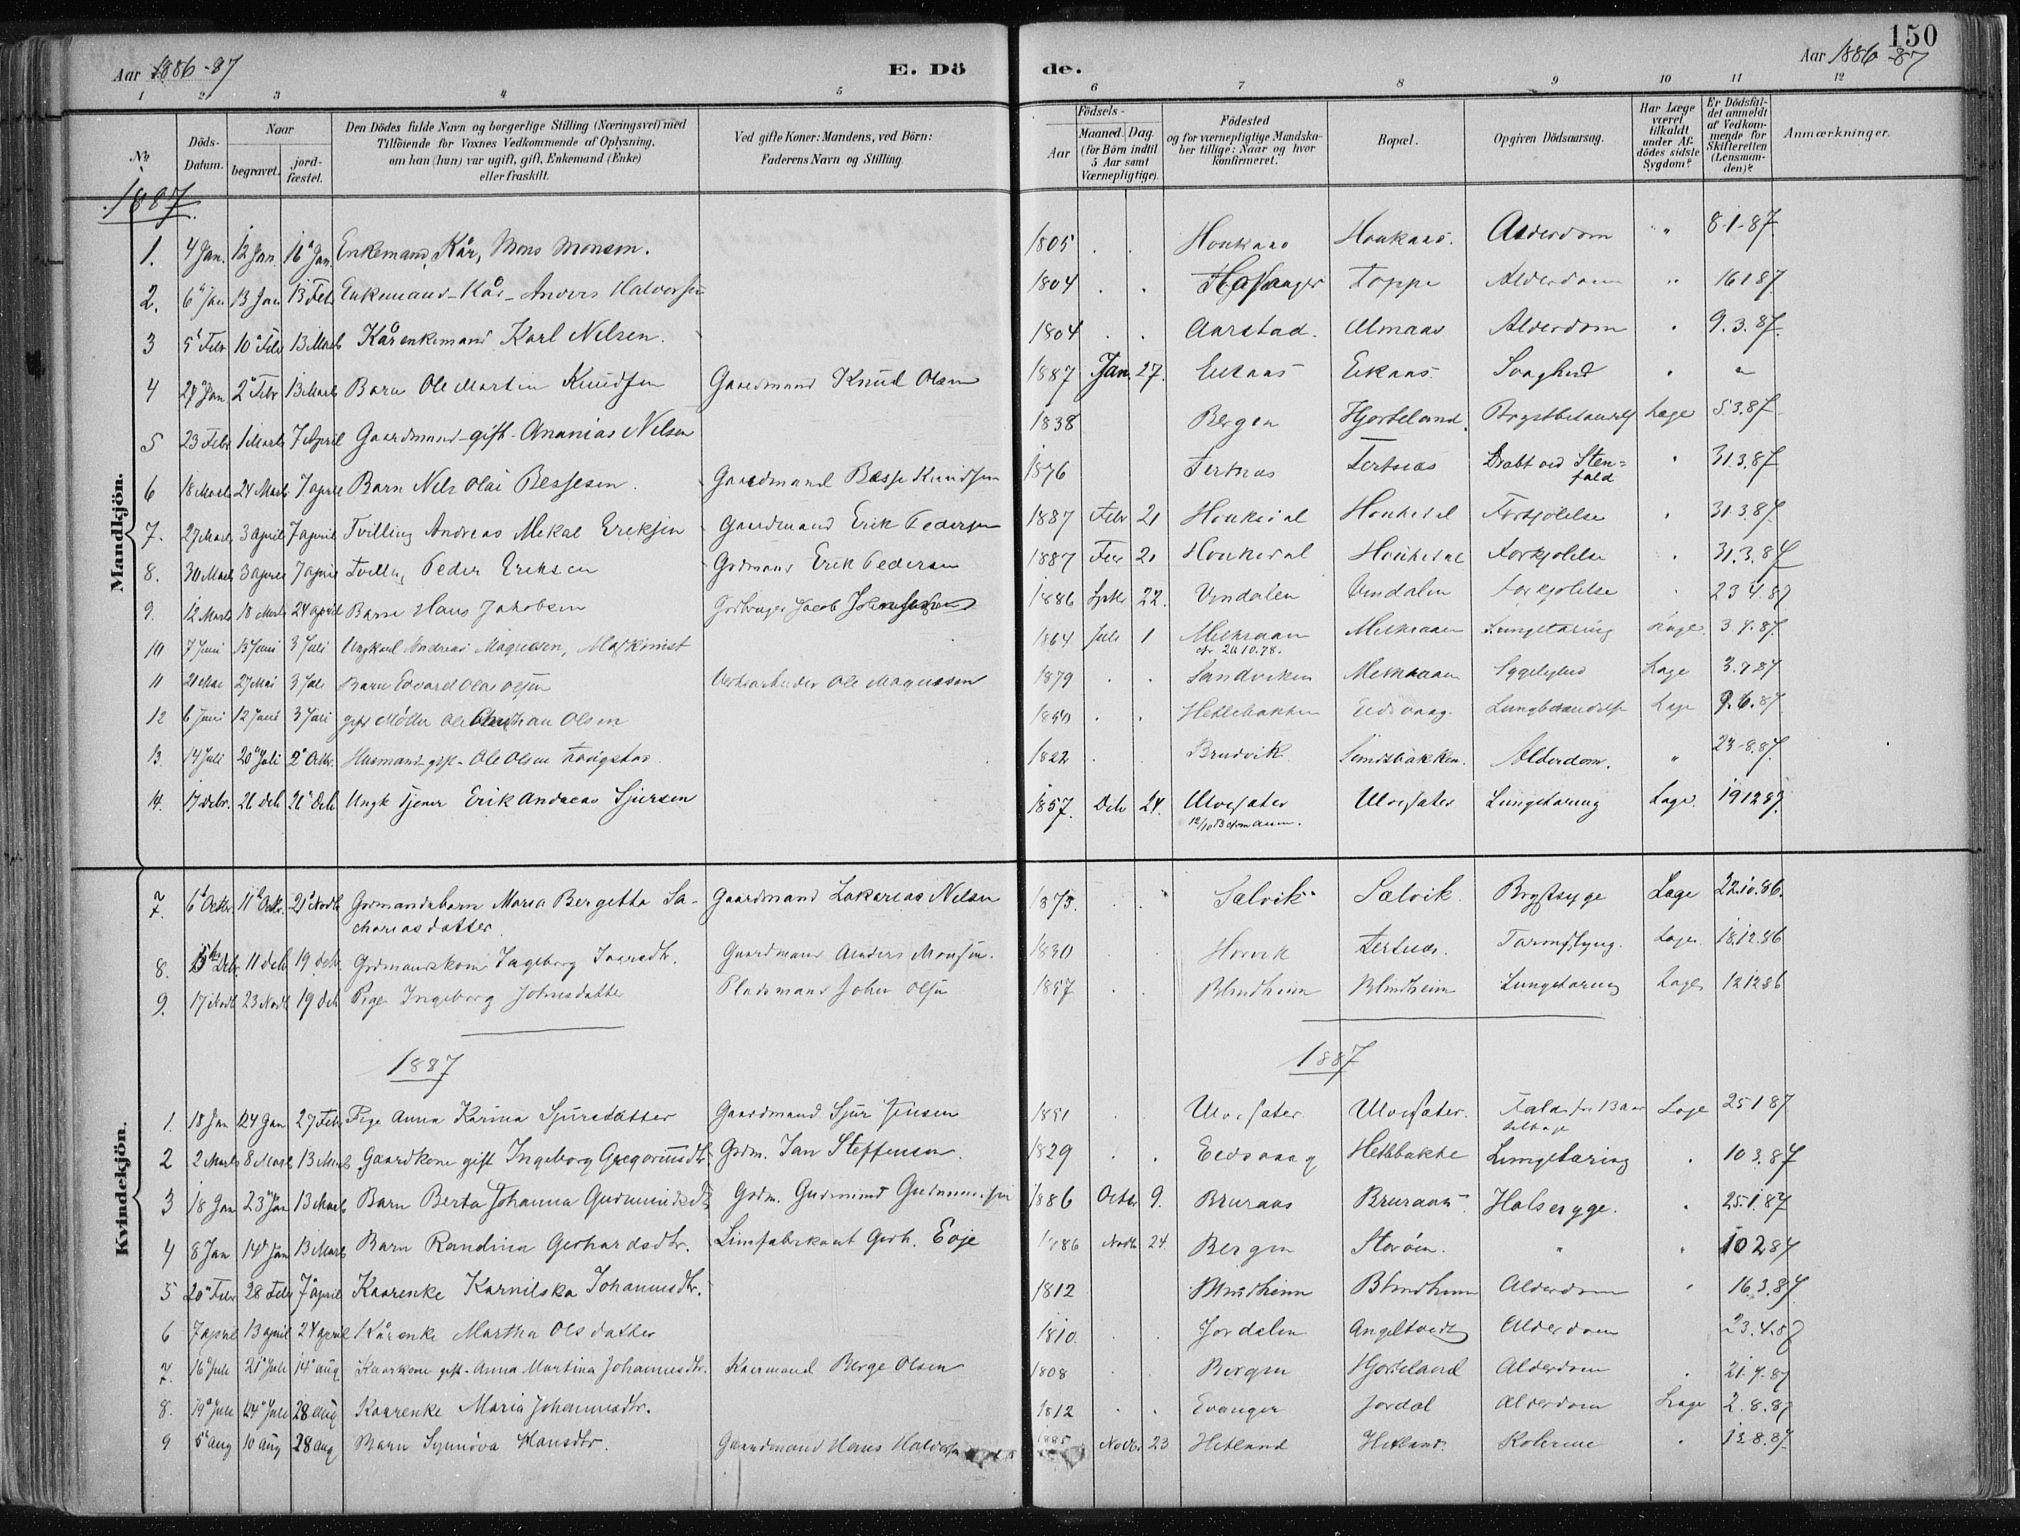 150
Aar 1886-87
E. Dö de.
Aar 1886-87
1 2 3 4 5 6 7 8 9 10 11 12
No
Döds-Datum.
Naar
begravet.
jord-fæstet.
Den Dödes fulde Navn og borgerlige Stilling (Næringsvei) med
Tilföiende for Voxnes Vedkommende af Oplysning,
om han (hun) var ugift, gift, Enkemand (Enke)
eller fraskilt.
Ved gifte Koner: Mandens, ved Börn:
Faderens Navn og Stilling.
Födsels-
Aar
Maaned. Dag.
(for Börn indtil
5 Aar samt
Værnepligtige).
Födested
og for værnepligtige Mandska-
ber tillige: Naar og hvor
konfirmeret.
Bopæl.
Opgiven Dödsaarsag.
Har Læge
været
tilkaldt
under Af-
dödes sidste
Sygdom?
Er Dödsfal-
det anmeldt
af Vedkom-
mende for
Skifteretten
(Lensman-
den)?
Anmærkninger.
Mandkjön.
1887
1. 4 Jan. 12 Jan. 16 Jan. Enkemand, Kår, Mons Monsen. 1805 . . Houkaas Houkaas. Alderdom " 8-1-87
2. 6 Jan 13 Jan 13 Feb Enkemand-Kår-Anders Halvorsen 1804 . . Toppe Alderdom " 16187
3 5 Febr 10 Febr 13 Marts Kårenkemand Karl Nelsen. 1804 . . Aarstad. Almaas Alderdom . 9.3.87.
4 27 Jan 2 Febr 13 Marts Barn Ole Martin Knudsen Gaardmand Knud Olsen 1887 Jan. 27. Eikaas Eikaas Svaghed . "
5 23 Febr 1 Marts 7 April Gaardmand-gift-Ananias Nelsen 1838 Bergen Hjorteland. Læge 5.3.87
6 18 Marts 24 Marts 7 april Barn Nels Olai Bessesen. Gaardmand Besse Knudsen 1876 Tertnæs Tertnæs Dræbt ved Sten=
fald . 31.3.87
7. 27 Marts 3 april 7 april Tvilling Andreas Mikal Eriksen Gaardmand Erik Pedersen 1887 Febr 21 Forkjølelse . 31.3.87.
8. 30 Marts 3 april 7 april Tvilling Peder Eriksen Grdmand Erik Pedersen 1887 Febr 21 Forkjølelse . 31.3.87
9. 12 Marts 18 Marts 24 april Barn Hans Jakobsen Grdbruger Jacob 1886 Septbr 22. Vindalen Forkjolelse . 23 4.87
10 7 Juni 13 Juni 3 Juli Ungkarl Andreas Magnesen, Maskinist 1864 Juli 1 Lungetæring Læge 3.7.87.
20.10.78.
11 21 Mai 27 Mai 3 Juli Barn Edvard Olai Olsen Ole Magnesen 1879 . . Sandviken Sygelighed Læge 3.7 87
12 6 Juni 12 Juni 3 Juli gift Møller Ole Christian Olsen 1850 . . Hetlebakken Eidsvaag. Lungebetændelse Læge 9.6.87
13. 14 Juli 20 Juli 2 Octbr. Husmand-gift-Ole Olsen 1822 . Bruvik Alderdom. " 23-8.87.
14. 17 Decbr. 26 Decb 26 Decb Ungk Tjener Erik Andreas Sjursen 1857. Decb 24. Ulvesæter Ulvesæter Lungetæring Læge. 191287.
7. 6 Octbr. 11 Octbr. 21 Novb Grdmandsbarn Maria Bergetta Sa-
chariasdatter. Gaardmand Zakarias Nelsen 1875. . . Salvik Salvik. Brystsyge Læge 22.10.86.
8. Decbr. 11 decb 19 decb. Grdmandskone Ingeborg Gaardmand Anders Monsen. 1830 . . Horvik Tertnæs. Læge 18.12.86
9. 17 Novb 23 Novb 19 Decb Pige Ingeborg Johnsdatter Pladsmand John Olsen 1857 . . Blindheim Blindheim Lungetæring Læge 121286
1887 1887
Kvindekjön.
1. 18 Jan 24 Jan 27 Feb Pige Anna Karina Sjursdatter Gaardmand Sjur Jensen 1851 . Ulvesæter Ulvesæter. Fald for 13 aar
tilbage Læge 25187
2 2 Marts 8 Marts 13 Marts Gaardkone gift Ingeborg Gregoriusdtr. Grdm. Jan Steffensen. 1829 . . Eidsvaag Hetlebakke Lungetæring . 103.87
3 18 Jan 23 Jan 13 Marts Barn Berta Johanna Gudmundsdtr Grdm. Gudmund Gudmundsen 1886 Octbr 9. Bruraas Bruraas Halssyge. . 25.1.87
4 8 Jan 14 Jan 13 Marts Barn Randina Gerhardsdtr. Limfabrikant Gerh. Eoje 1886 Novb 24. Bergen Storøen. " " 10287
5 20 Febr 28 Febr 7 april Kaarenke Karnilska Johannisdtr. 1812 Blindheim Blindheim Alderdom " 16.3.87.
6 7 april 13 april 24 april Kårenke Martha Olsdatter 1810. Jordalen Angeltvedt Alderdom 23.4.87
7. 16 Juli 21 Juli 14 aug Kaarkone gift-Anna Martina Johannesdtr. Kaarmand Berge Olsen 1808 . . Bergen Hjorteland Alderdom . 21.7.87
8. 19 Juli 24 Juli 28 aug Kaarenke Maria Johannesdtr. 1812 . . Evanger Jordal Alderdom Læge 2.8.87
9 5 aug 10 aug 28 aug Barn Synnöva Hansdtr. Gaardmand Hans Halvorsen 1885 Novbr 23 Hetland Hetland. Kolerine . 128.87.